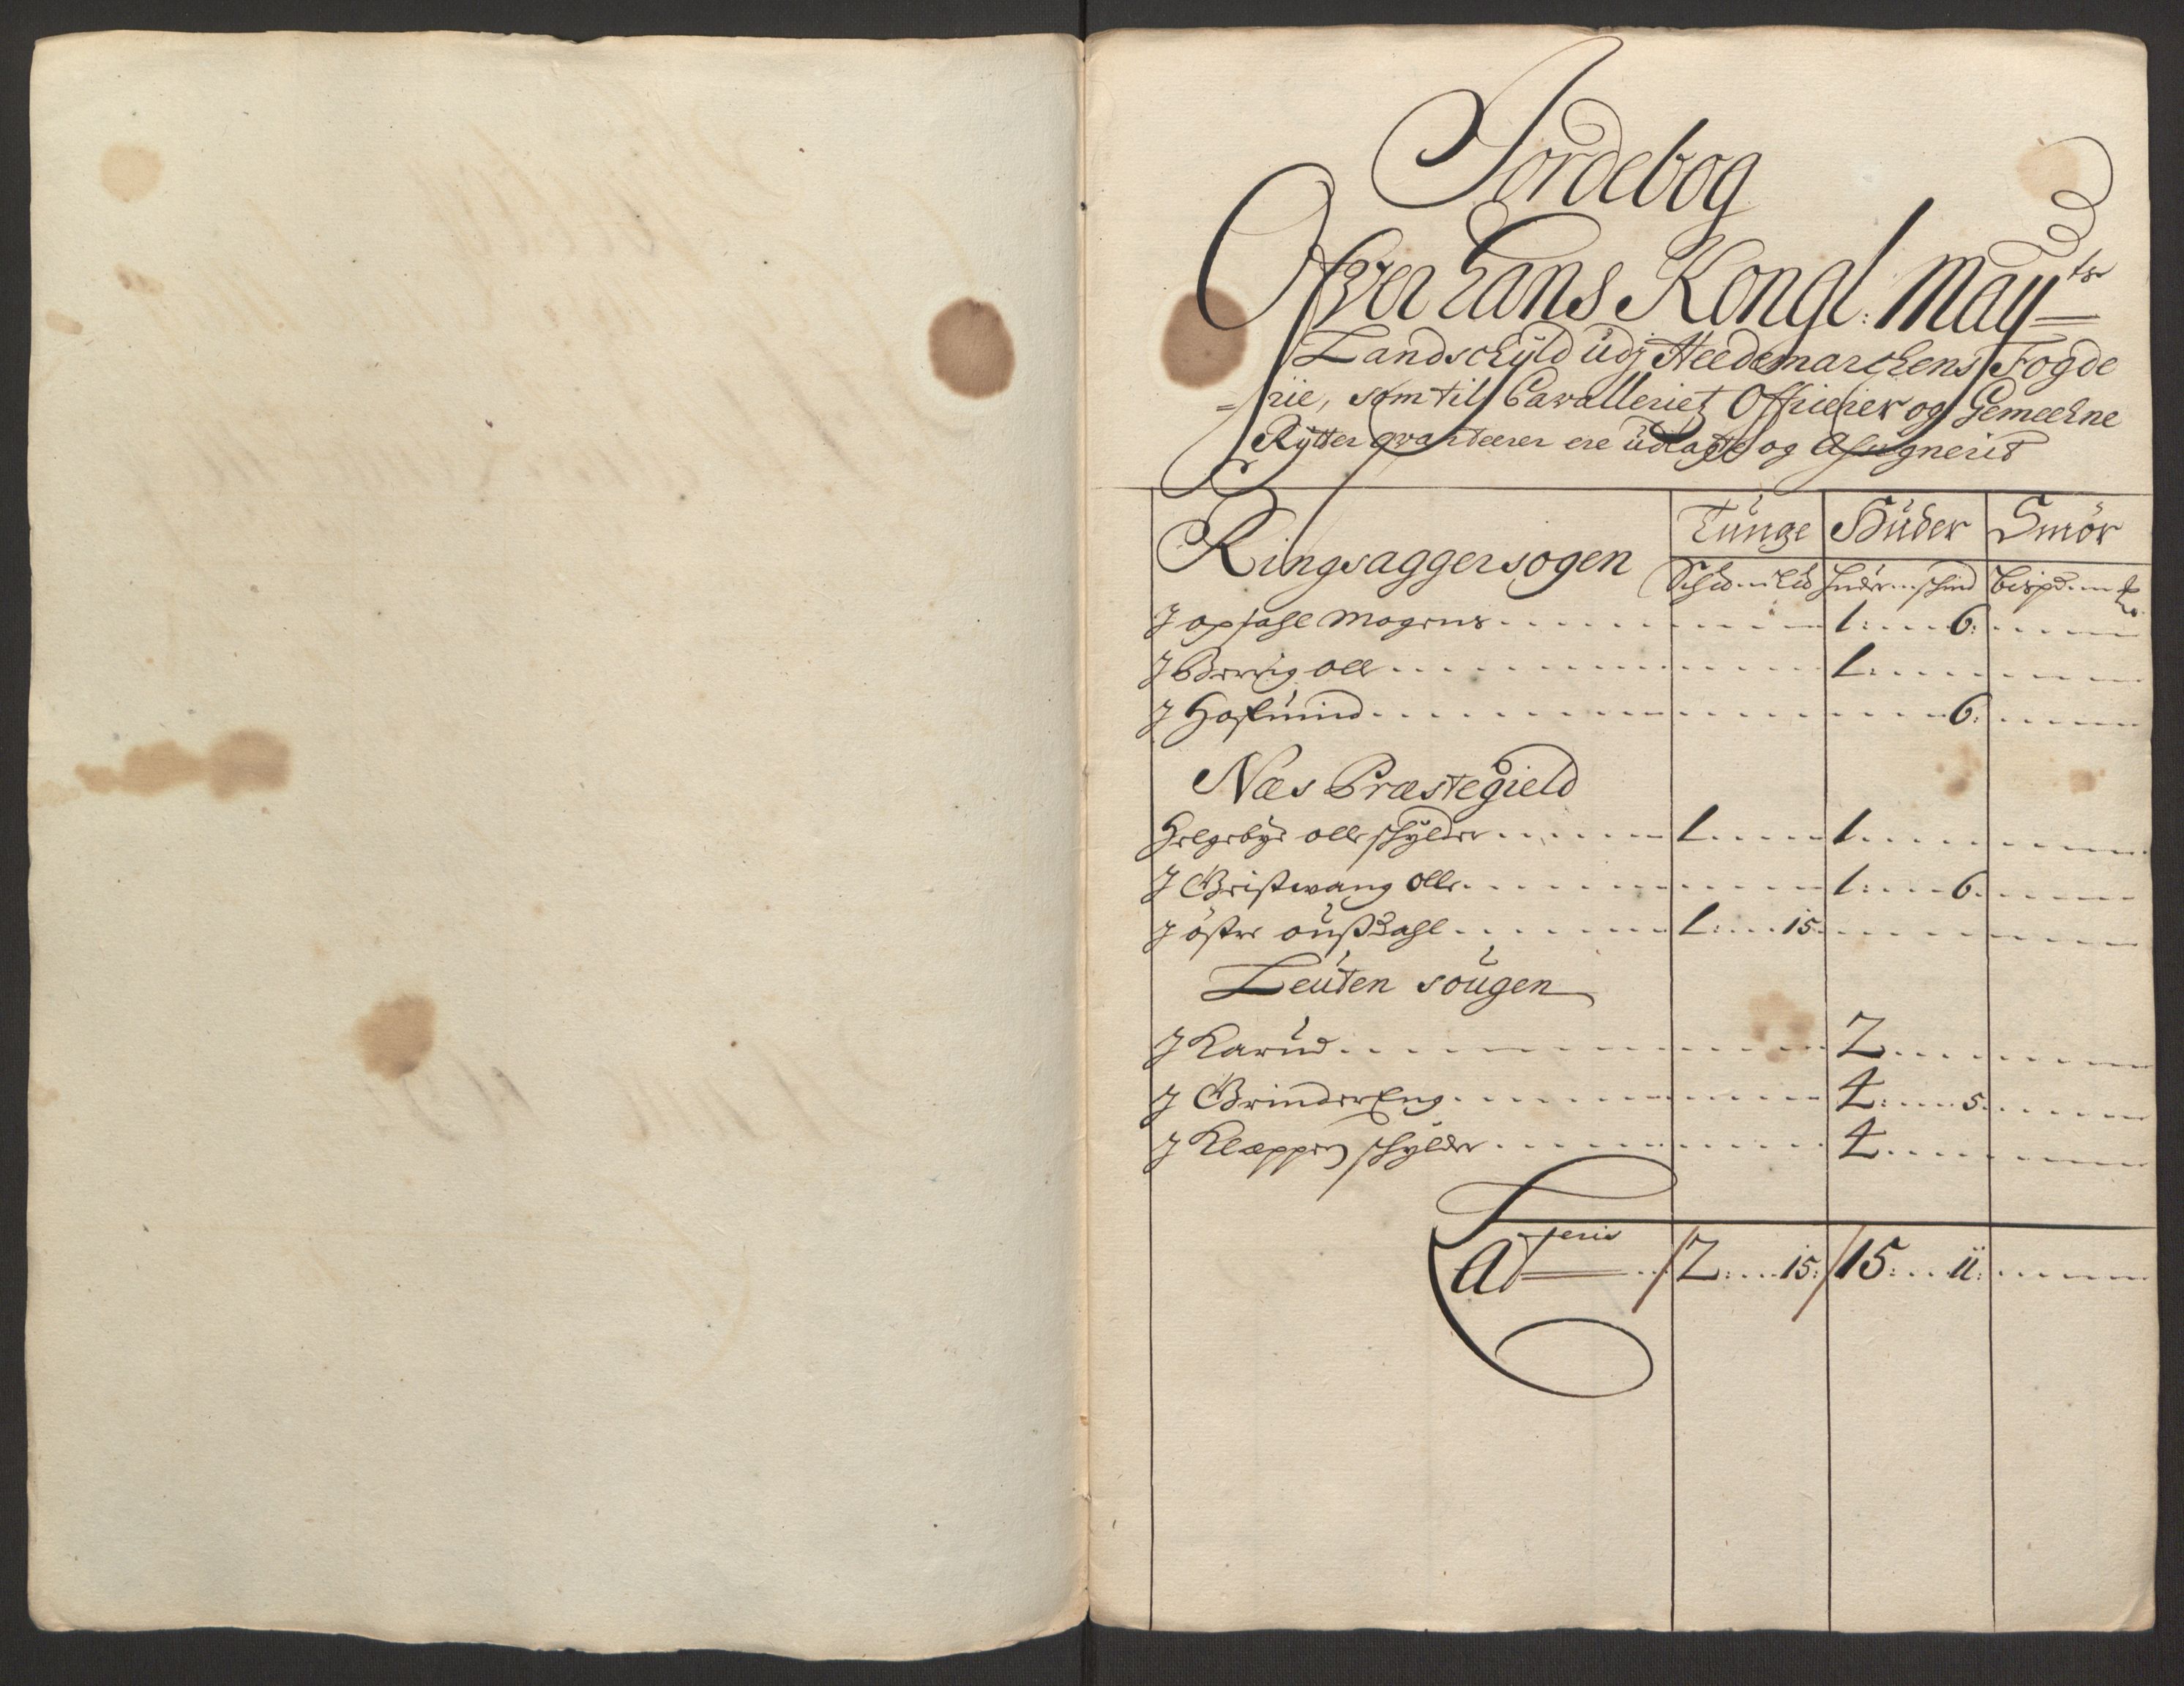 Jordebog
Ofver Hans Kongl: May^ts
Landschyld udj Heedemarchens Fogde
=rie, som til Cavalleriet Officierer og Gemeehne
Rytter qvarteerer ere udlagte og Assignerit
Tunge Huder Smør
Ringsaggersogen
Schd.. Lid huder... schind bispd...
J opsahl Mogens ..... 1: .... 6:
J Berrig Olle ..... 1:
J Hoflund ..... 6:
Næs Præstegield
Helgebye Olle schylder ..... 1 ..... 1
J Greistwang Olle ..... 1: .... 6.
J østre Oustdahl ..... 1: .... 15.
Leuten sougen
J Karud ..... 2
J Grinder Eng ..... 4: .... 5.
J Klæppen schylder ..... 4
Lateris ... 2: .... 15: 15: ... 11: